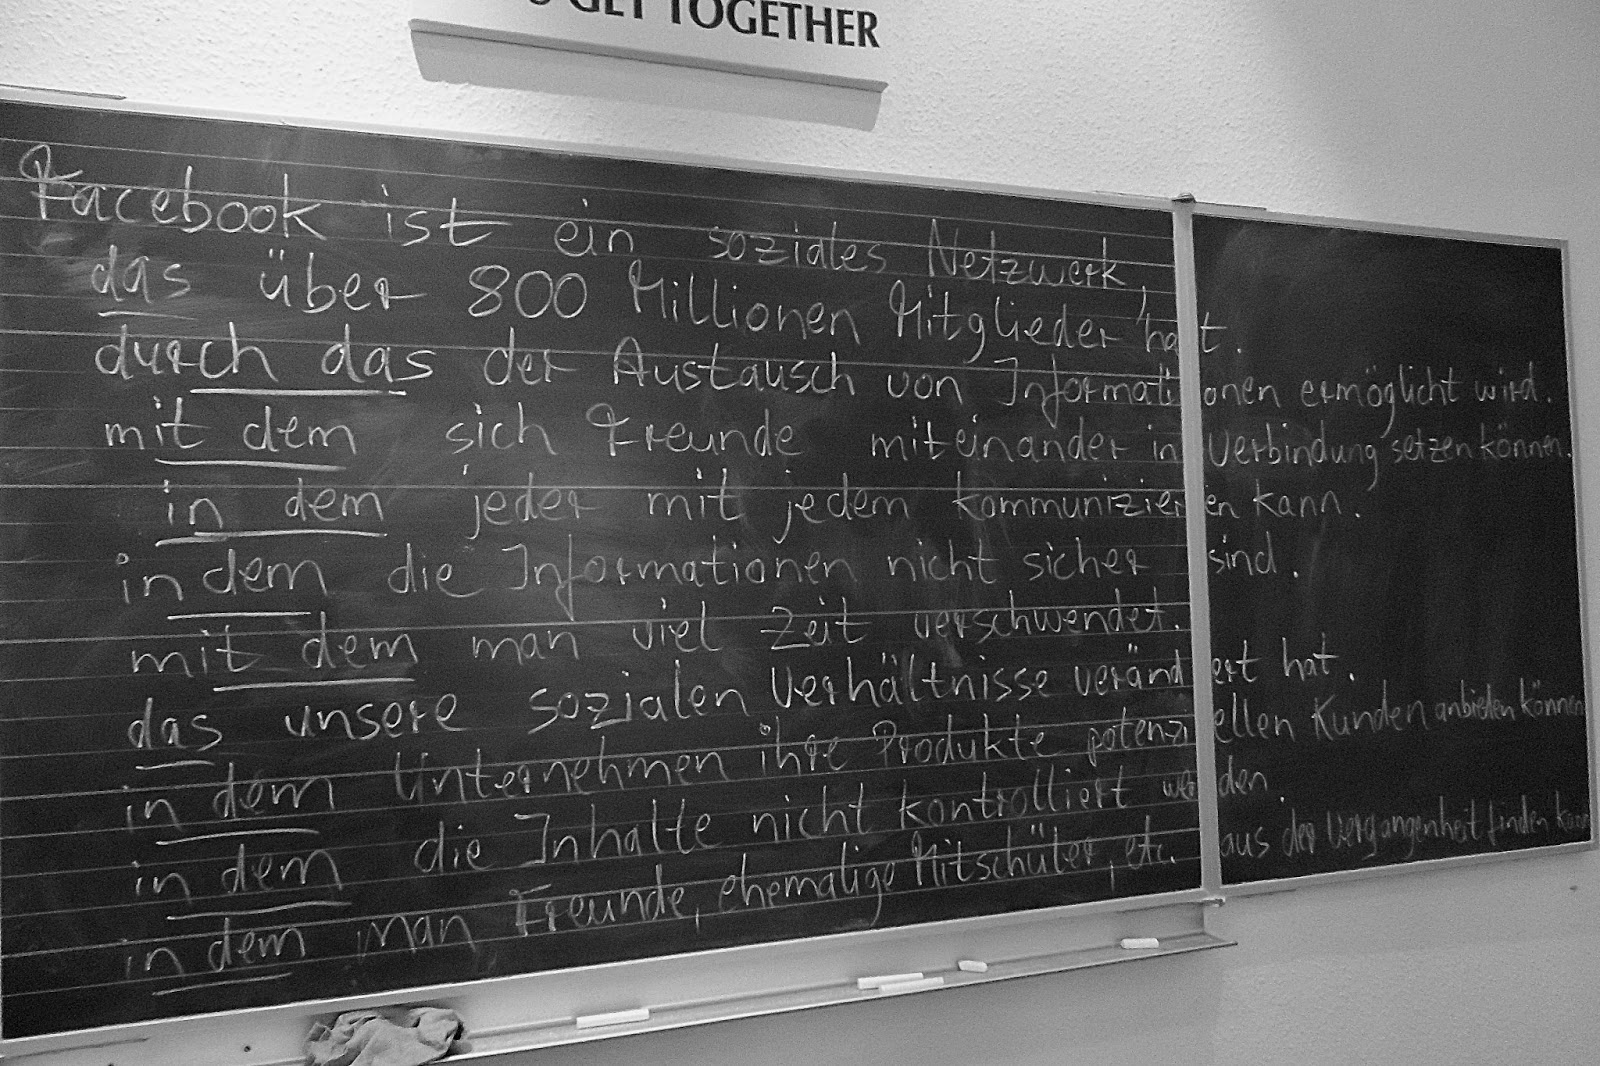 GET TOGETHER
Facebook ist ein soziales Netzwerk,
das über 800 Millionen Mitglieder hat.
durch das der Austausch von Informationen ermöglicht wird.
mit dem sich Freunde miteinander in Verbindung setzen können.
in dem jeder mit jedem kommunizieren kann.
in dem die Informationen nicht sicher sind.
mit dem man viel Zeit verschwendet.
das unsere sozialen Verhältnisse verändert hat.
in dem Unternehmen ihre Produkte potenziellen Kunden anbieten können
in dem die Inhalte nicht kontrolliert werden.
in dem man Freunde, ehemalige Mitschüler, etc. aus der Vergangenheit finden kann